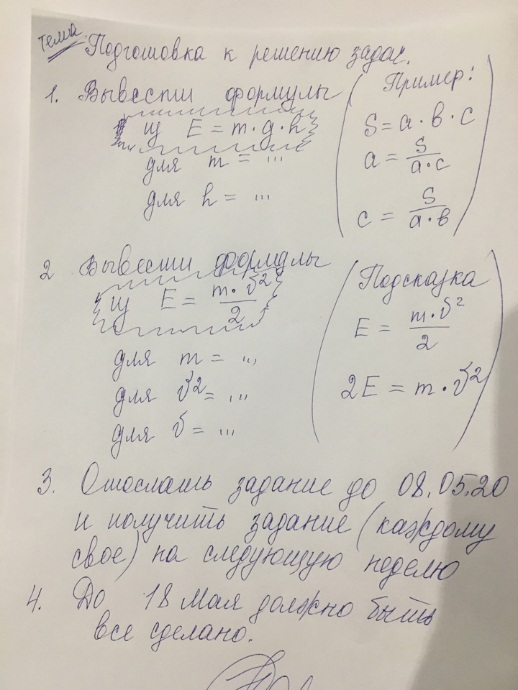 Тема
Подготовка к решению задач.
1. Вывести формулы
из E = m·g·h
для m = ...
для h = ...
(Пример:
S = a·в·с
a = S/a·c
c = S/a·в)
2 Вывести формулы
из E = m·v²/2
для m = ...
для v² = ...
для v = ...
(Подсказка
E = m·v²/2
2E = m·v²)
3. Отослать задание до 08.05.20
и получить задание (каждому
свое) на следующую неделю
4. До 18 мая должно быть
все сделано.